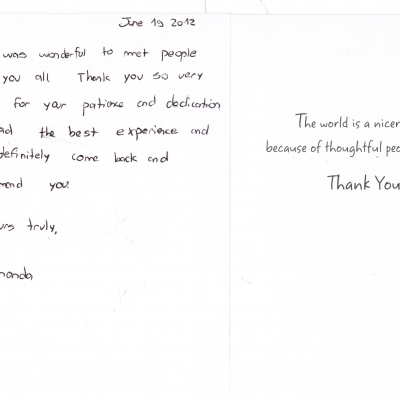 June 19 2012
was wonderful to met people
you all Thank you so very
for your patience and dedication
the best experience and
definitely come back and
you!
truly,
The world is a nicer
because of thoughtful
Thank You